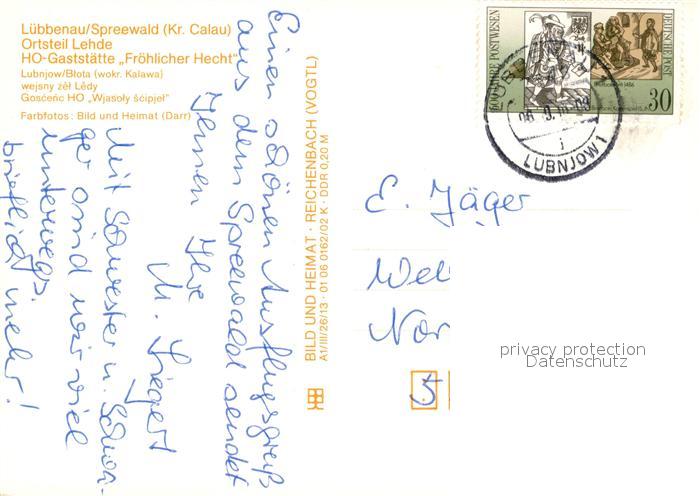 Lübbenau/Spreewald (Kr. Calau)
Ortsteil Lehde
HO-Gaststätte „Fröhlicher Hecht“
Lubnjow/Błota (wokr. Kalawa)
wejsny źěł Lědy
Gosćeńc HO „Wjasoły šćipjeł“
Farbfotos: Bild und Heimat (Darr)
Einen schönen Ausflugsgruß
aus dem Spreewald sendet
Ihnen Ihre
M. Siegert
Mit Schwester u. Schwa-
ger sind wir viel
unterwegs.
brieflich mehr!
BILD UND HEIMAT · REICHENBACH (VOGTL)
A1/III/26/13 · 01 06 0162/02 K · DDR 0,20 M
600 JAHRE POSTWESEN
DEUTSCHE POST
30
LUBNJOW 1
E. Jäger
Nor
5
privacy protection
Datenschutz